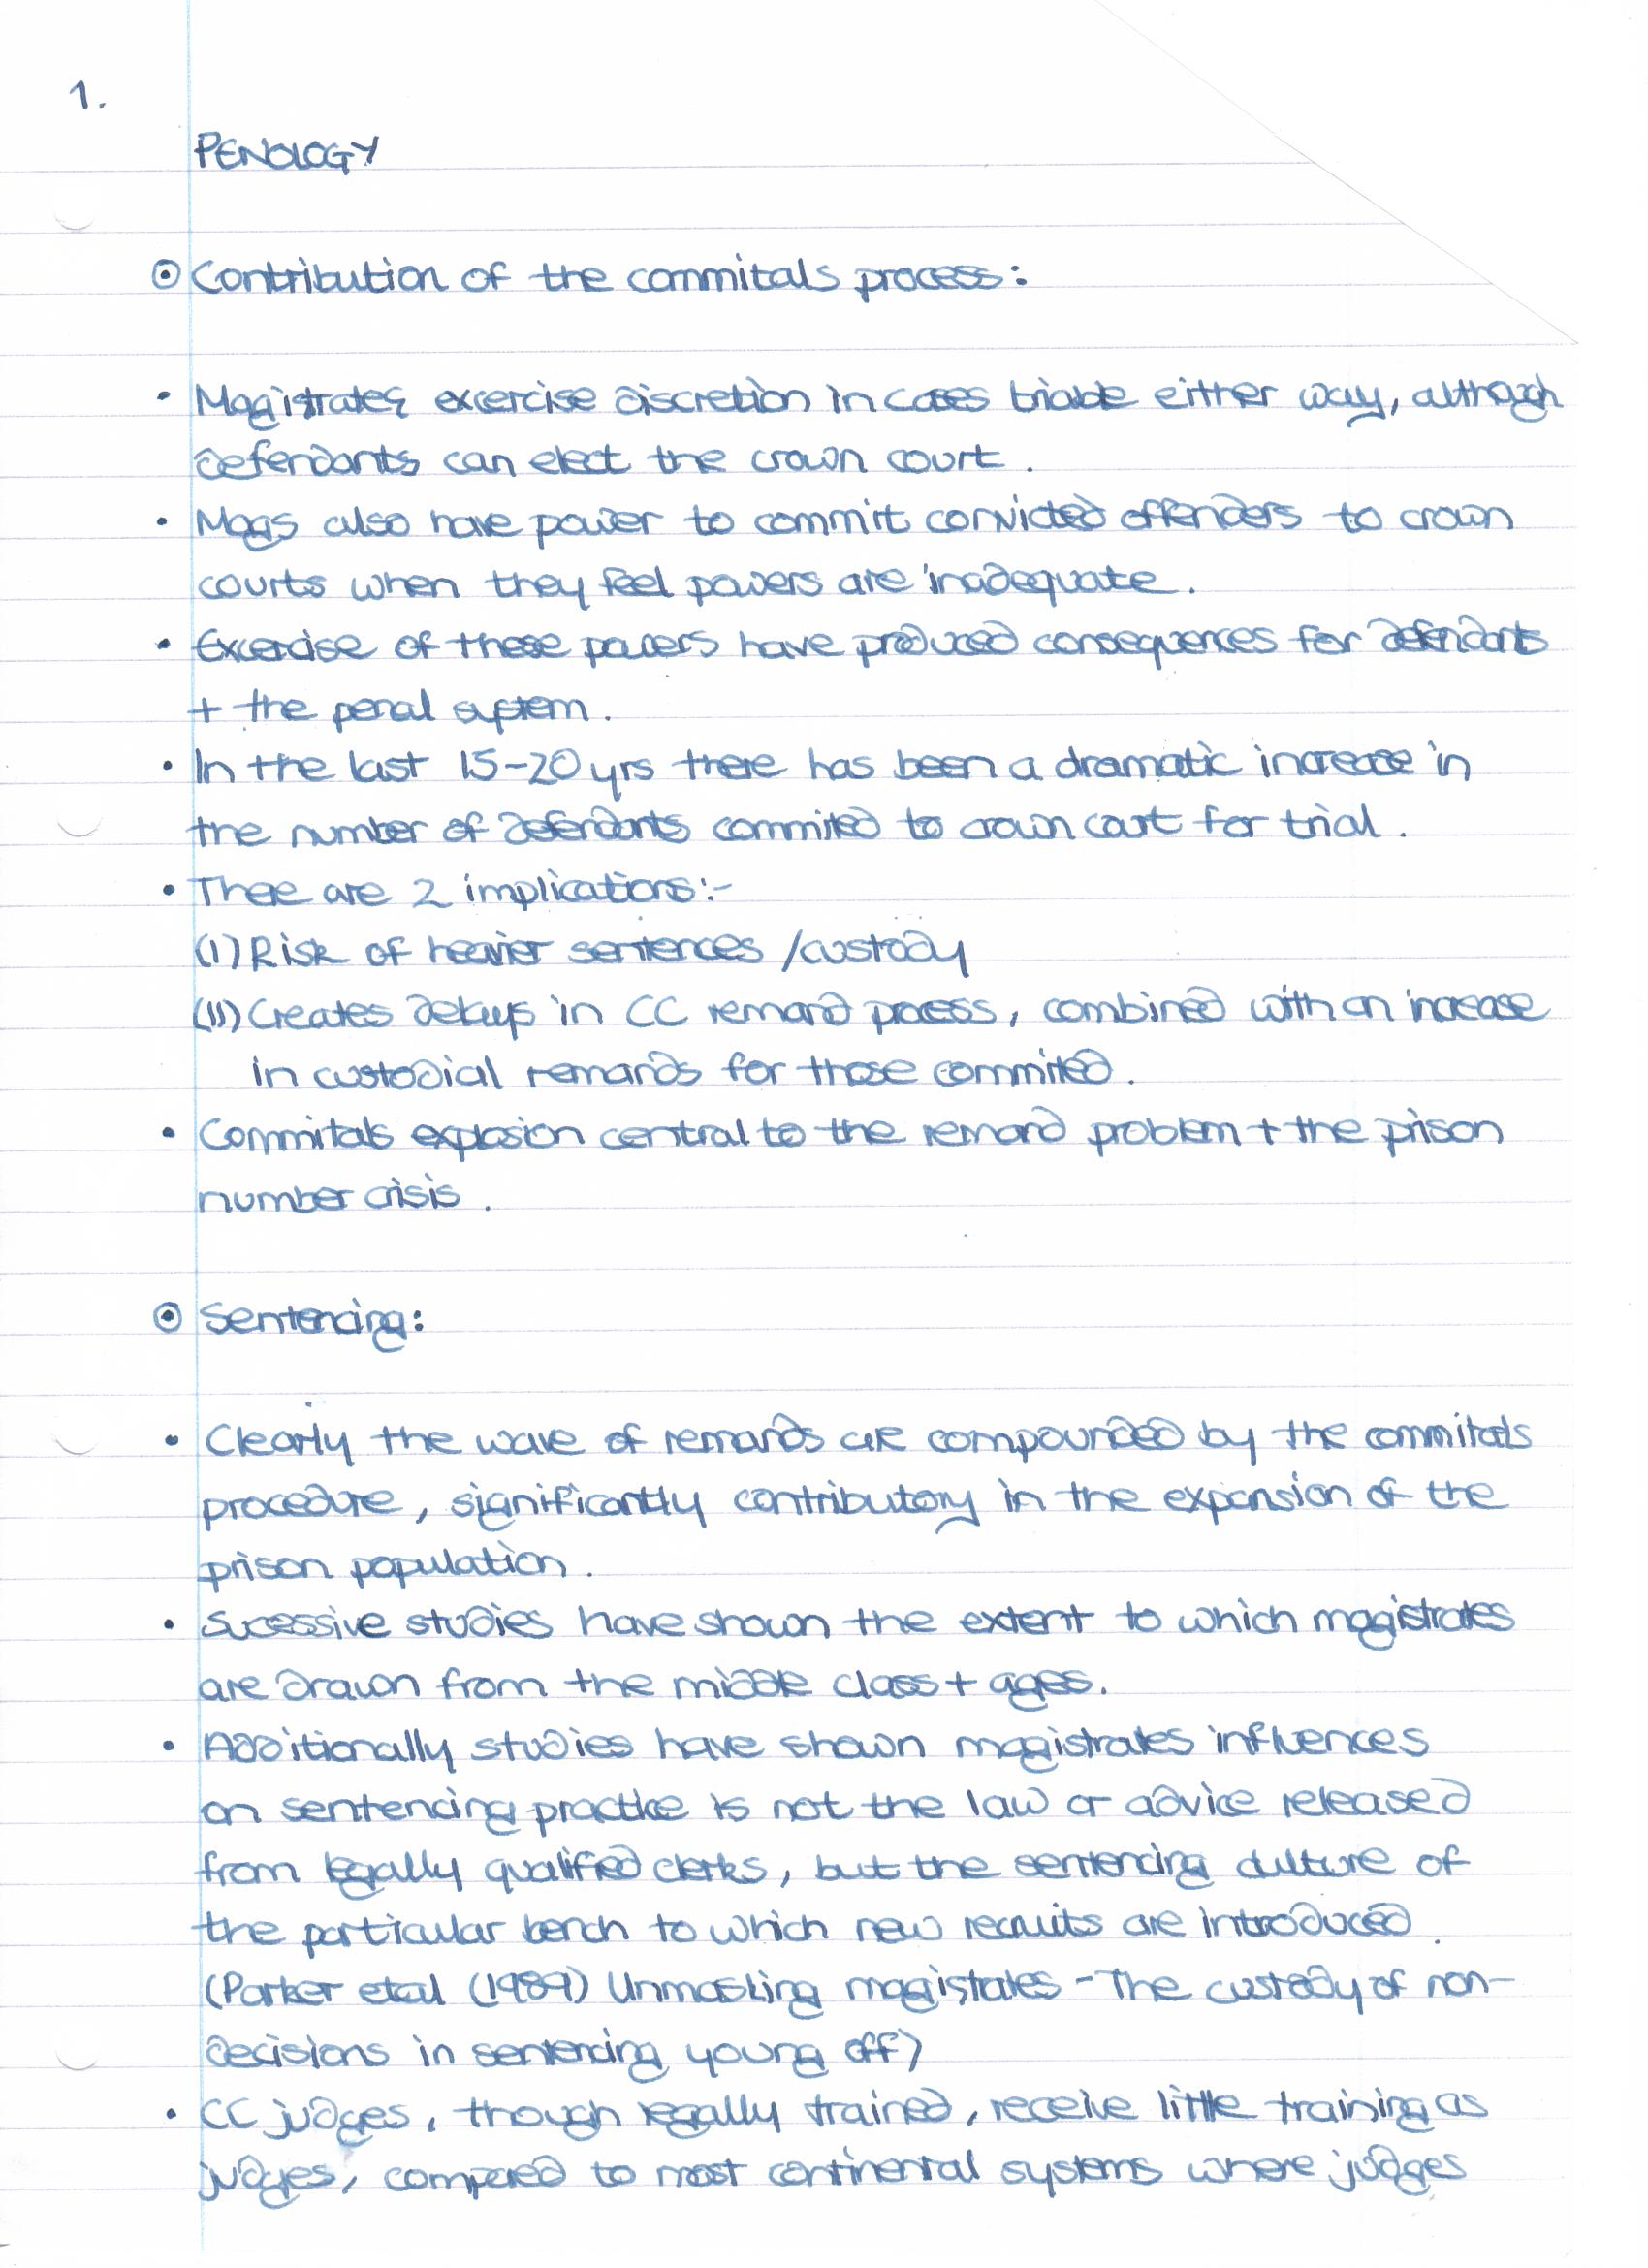 1.
PENOLOGY
⊙ Contribution of the commitals process:
• Magistrates excercise discretion in cases triable either way, although
defendants can elect the crown court.
• Mags also have power to commit convicted offenders to crown
courts when they feel powers are inadequate.
• Excercise of these powers have produced consequences for defendants
+ the penal system.
• In the last 15-20 yrs there has been a dramatic increase in
the number of defendants commited to crown court for trial.
• There are 2 implications:-
(I) Risk of heavier sentences / custody
(II) Creates delays in CC remand process, combined with an increase
in custodial remands for those commited.
• Commitals explosion central to the remand problem + the prison
number crisis.
⊙ Sentencing:
• Clearly the wave of remands are compounded by the commitals
procedure, significantly contributory in the expansion of the
prison population.
• Sucessive studies have shown the extent to which magistrates
are drawn from the middle class + ages.
• Additionally studies have shown magistrates influences
on sentencing practice is not the law or advice released
from legally qualified clerks, but the sentencing culture of
the particular bench to which new recruits are introduced.
(Parker et al (1989) Unmasking magistates - The custody of non-
decisions in sentencing young off)
• CC judges, though legally trained, receive little training as
judges, compared to most continental systems where judges